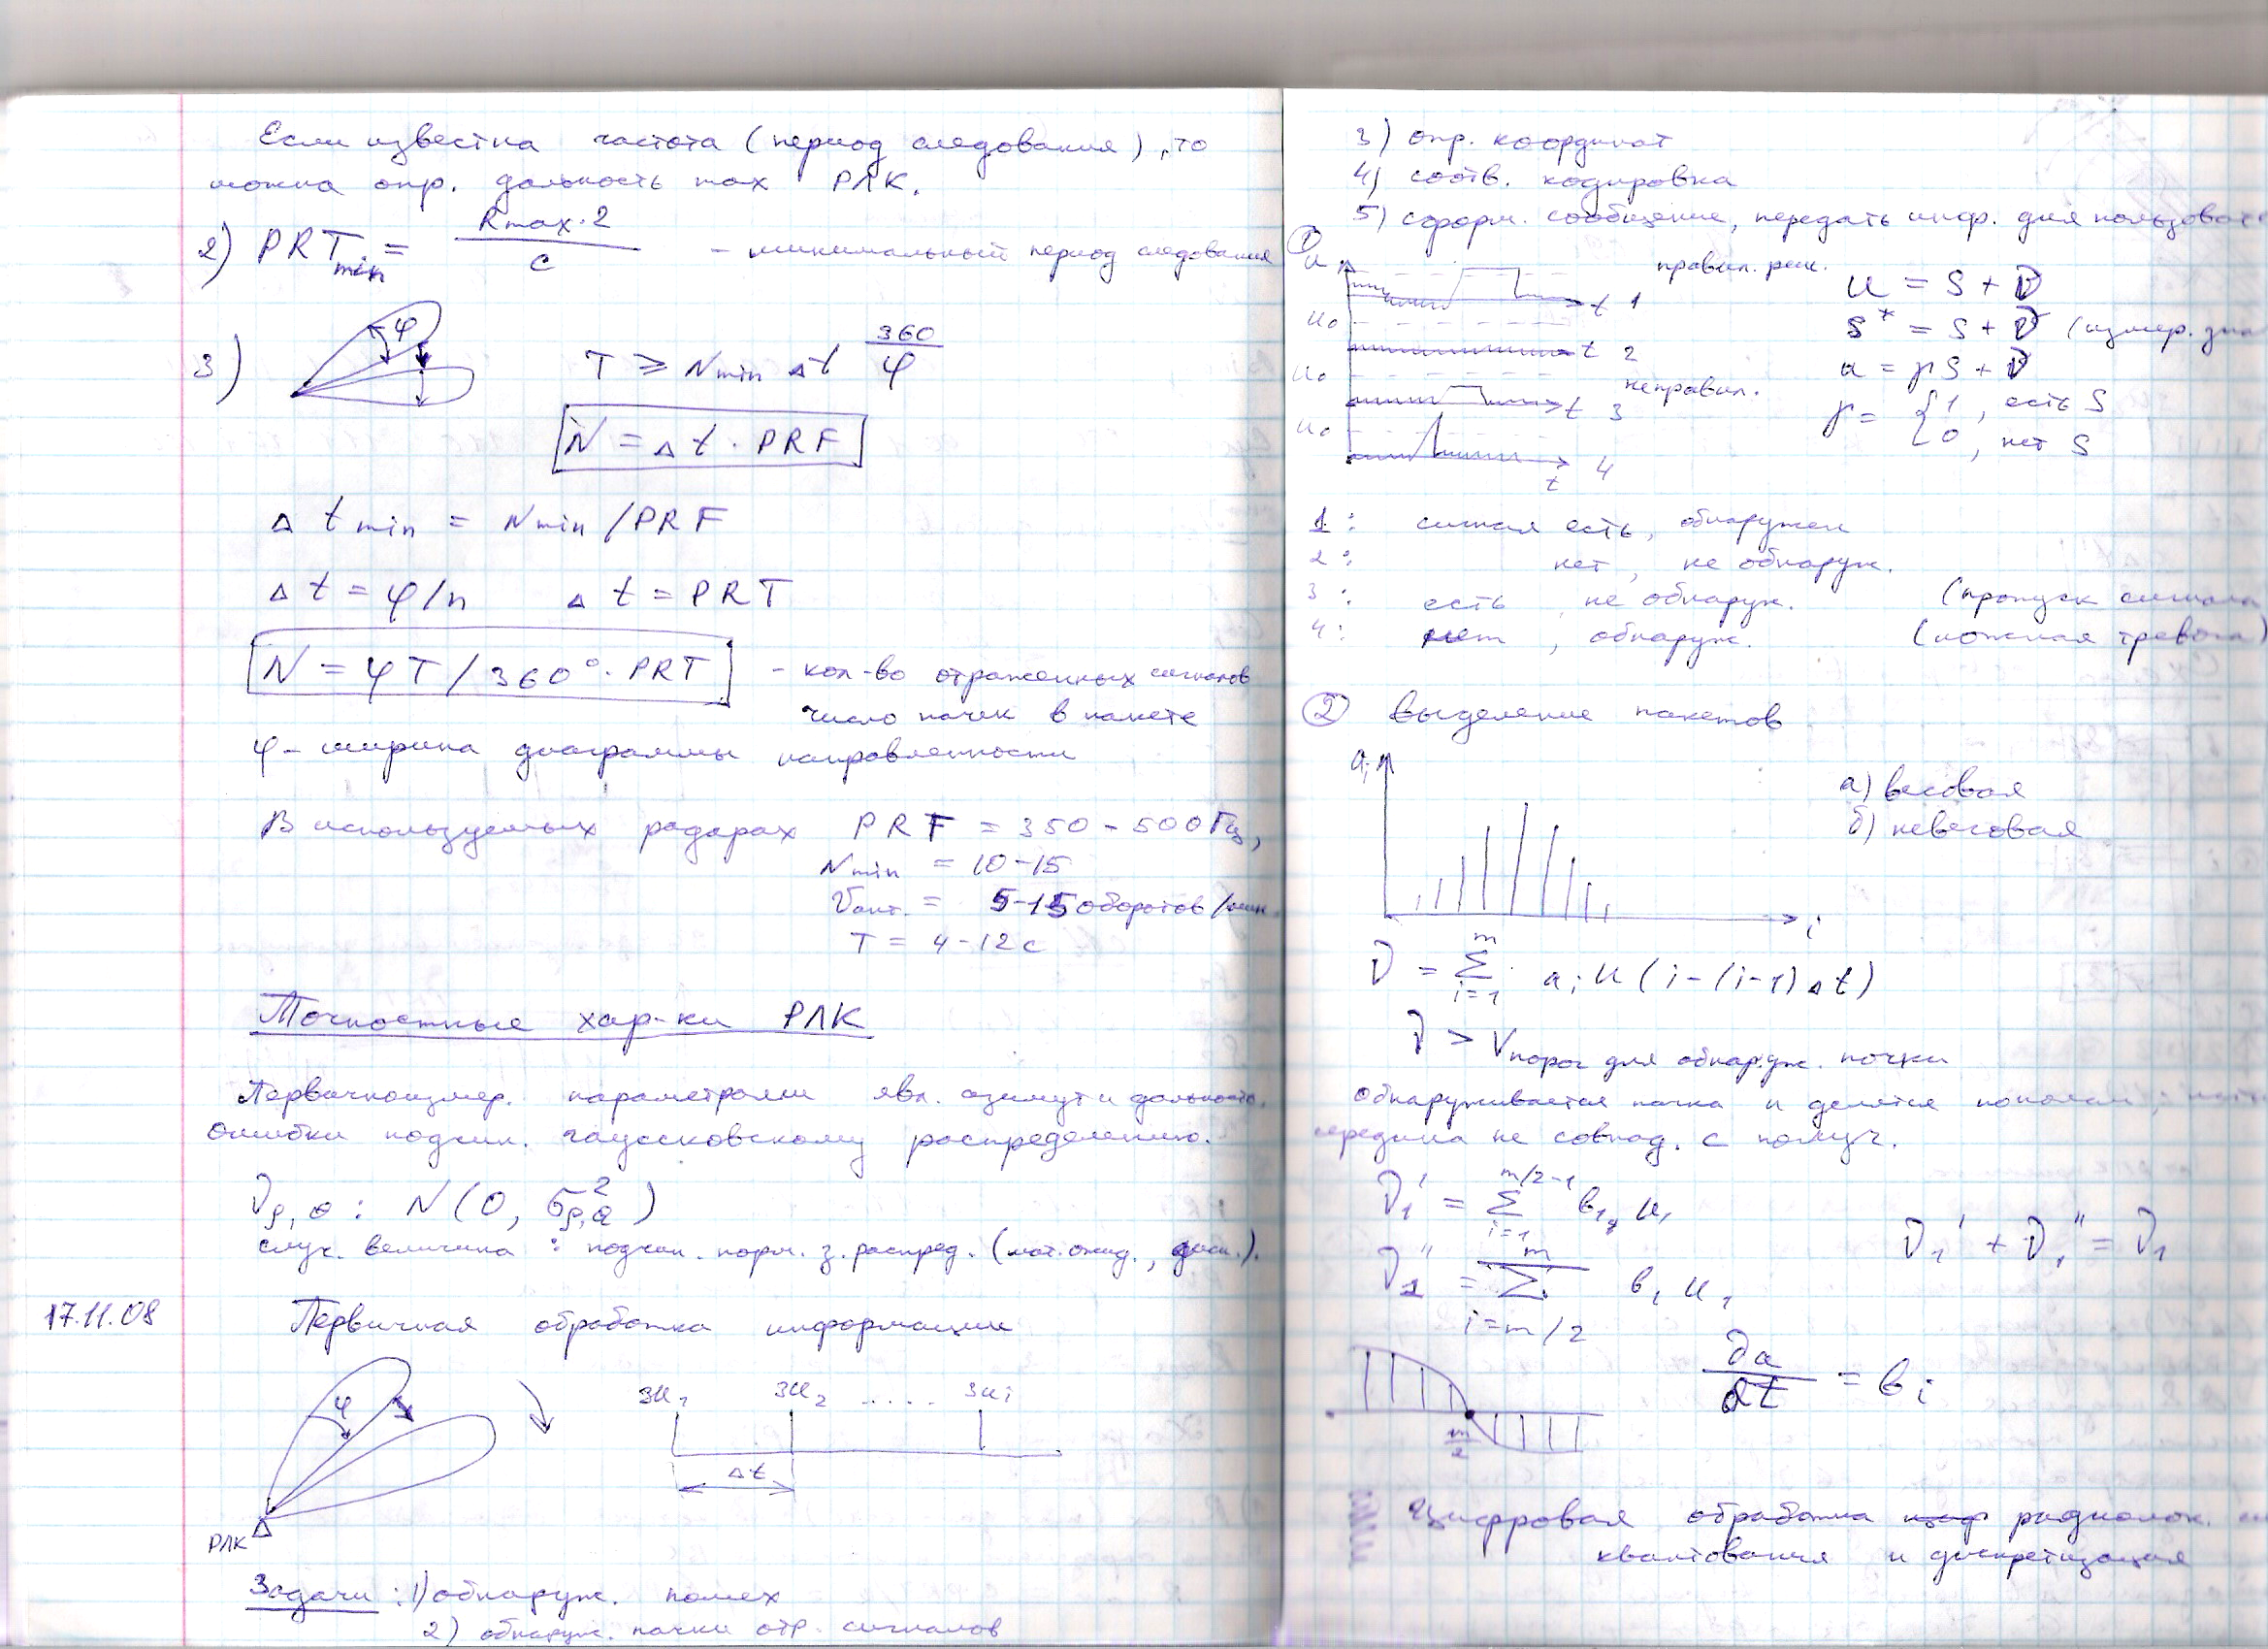 Если известна частота (период следования), то
можна опр. дальность max РЛК.
2) PRTmin = Rmax·2 / c - минимальный период следования
3) φ T ≥ Nmin Δt 360/φ
N = Δt · PRF
Δt min = Nmin / PRF
Δt = φ/n Δt = PRT
N = φT / 360°· PRT - кол-во отраженных сигналов
число пачек в пакете
φ - ширина диаграммы направленности
В используемых радарах PRF = 350 - 500 Гц,
Nmin = 10-15
Vант. = 5-15 оборотов/мин.
T = 4-12 с
Точностные хар-ки РЛК
Первичноизмер. параметрами явл. азимут и дальность.
Ошибки подчин. гауссковскому распределению.
ν ρ,θ : N(0, σ²ρ,θ)
случ. величина : подчин. норм. з. распред. (мат. ожид., дисп.).
17.11.08 Первичная обработка информации
φ ЗИ1 ЗИ2 .... ЗИi
Δt
РЛК
Задачи: 1) обнаруж. помех
2) обнаруж. пачки отр. сигналов
3) опр. координат
4) соотв. кодировка
5) сформ. сообщение, передать инф. для
1
u правил. реш. u = S + ν
t 1
u0 S* = S + ν (измер.
t 2 u = γS + ν
u0 неправил.
t 3 γ = { 1, есть S
u0 0, нет S
t 4
1: сигнал есть, обнаружен
2: нет, не обнаруж.
3: есть, не обнаруж. (пропуск сигнала
4: нет, обнаруж. (ложная тревога)
2 Выделение пакетов
ai i
а) весовая
б) невесовая
ν = m Σ i=1 ai u (i-(i-1)Δt)
ν > Vпорог для обнаруж. пачки
Обнаруживается пачка и делится пополам;
середина не совпад. с получ.
ν1' = m/2-1 Σ i=1 b1, u1
ν1'' = m Σ i=m/2 b1 u1 ν1' + ν1'' = ν1
∂a/∂t = bi
m/2
Цифровая обработка радиолок.
квантования и дискретизация